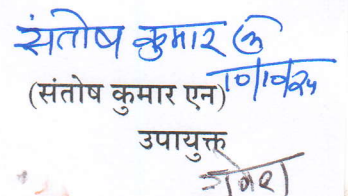 संतोष कुमार
10/10/24
(संतोष कुमार एन)
उपायुक्त